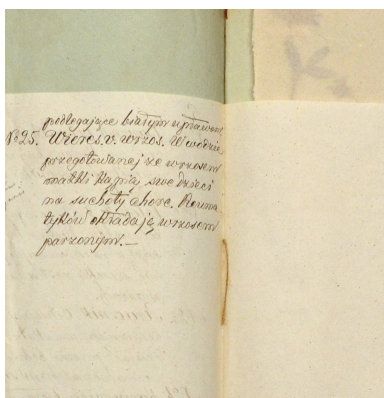 podlegające białym upławom.
№ 25. Wieres. v. wrzos. W wodzie
przegotowanej ze wrzosem
matki kąpią swe dzieci
na suchoty chore. Reuma-
tyków okładają wrzosem
parzonym.—